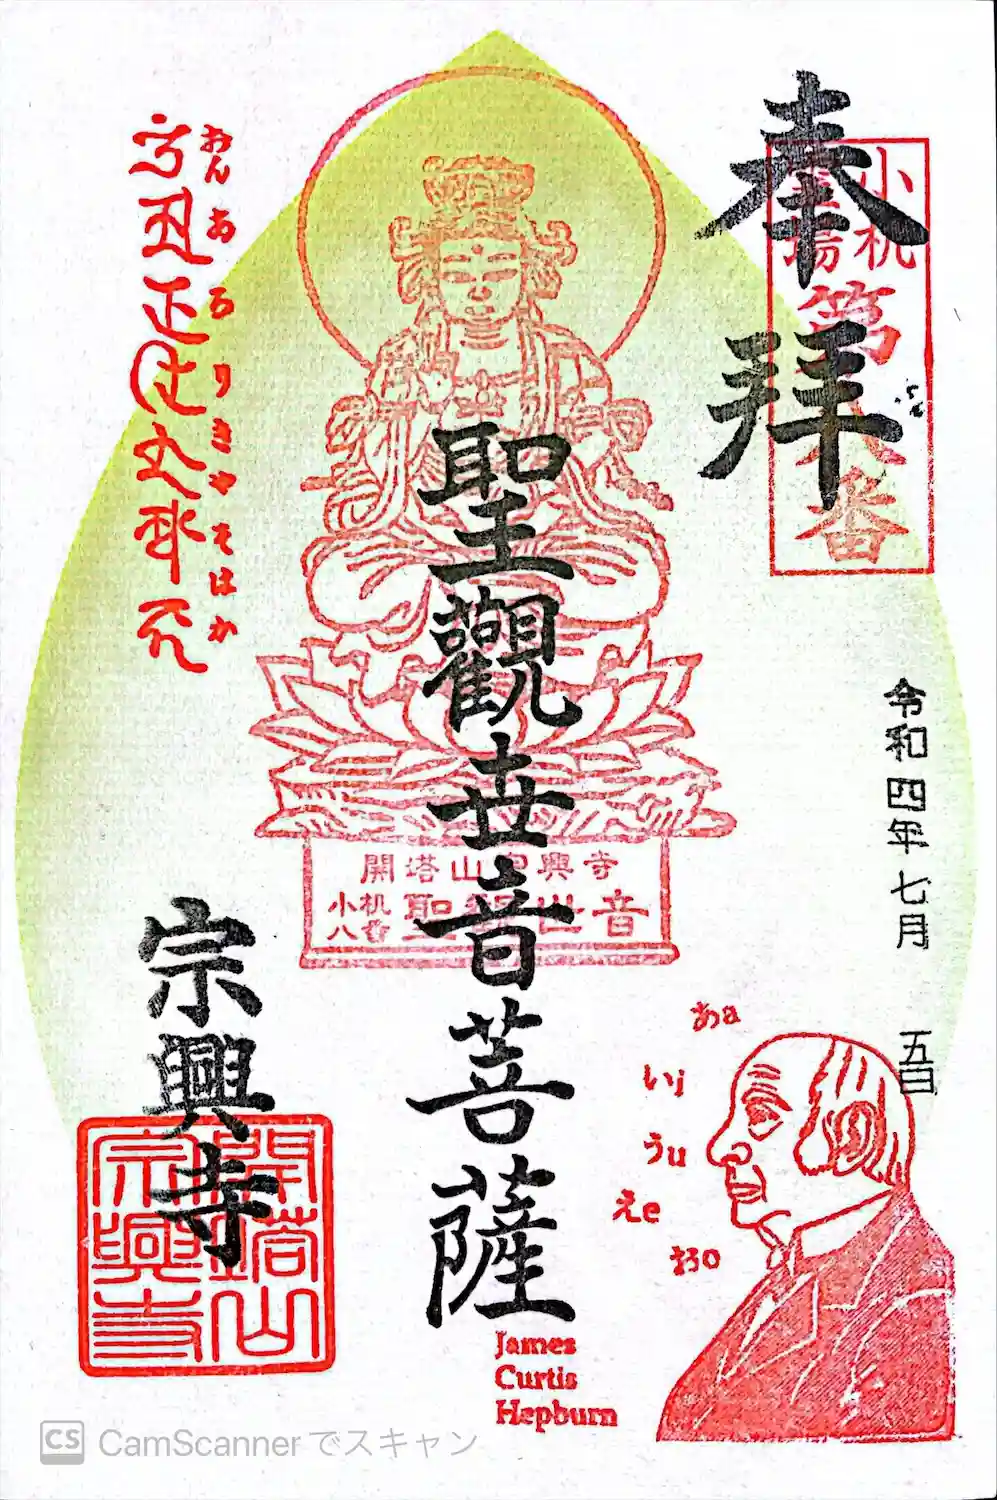 奉拝
小机
霊場
第八番
令和四年七月 五日
聖觀世音菩薩
おん あろりきゃ そはか
開塔山宗興寺
小机
八番
聖観世音
宗興寺
開塔山
宗興寺
あa
いi
うu
えe
おo
James
Curtis
Hepburn
CS CamScannerでスキャン